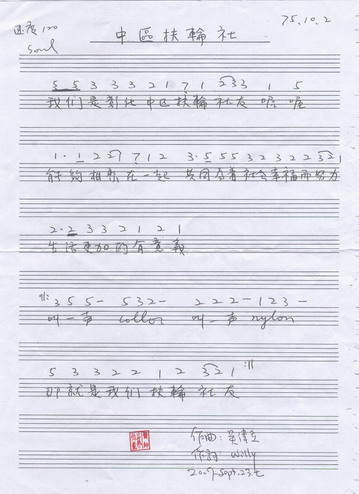 75.10.2
速度120
Soul
中區扶輪社
5 5 3 3 3 2 1 7 1 2 3 3 1 5
我们是彰化中区扶輪社友 喔 喔
1 · 1 2 2 7 7 1 2 3 · 5 5 5 3 2 3 2 2 3 2 1
能夠相聚在一起 共同為着社会幸福而努力
2 · 2 3 3 2 1 2 1
生活更加的有意義
3 5 5 - 5 3 2 - 2 2 2 - 1 2 3 -
叫一声 collor 叫一声 nylon
5 3 3 2 2 1 2 3 2 1
那就是我们扶輪社友
作曲:
作詞: Willy
2007. Sept. 23